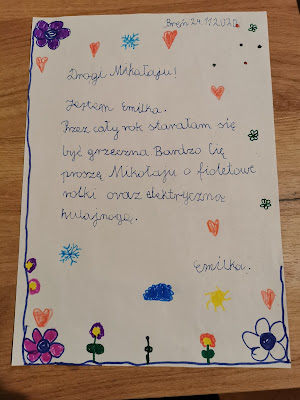 Breń 24.11.2020
Drogi Mikołaju!
Jestem Emilka.
Przez cały rok starałam się
być grzeczna. Bardzo Cię
proszę Mikołaju o fioletowe
rolki oraz elektryczną
hulajnogę.
Emilka.